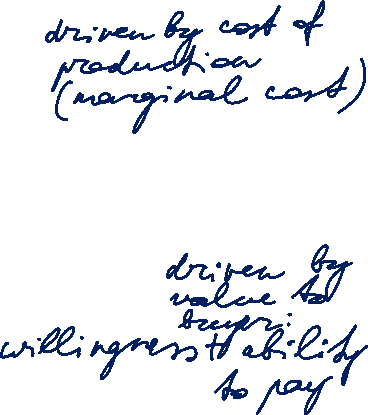 driven by cost of
production
(marginal cost)
driven by
value to
buyer:
willingness + ability
to pay